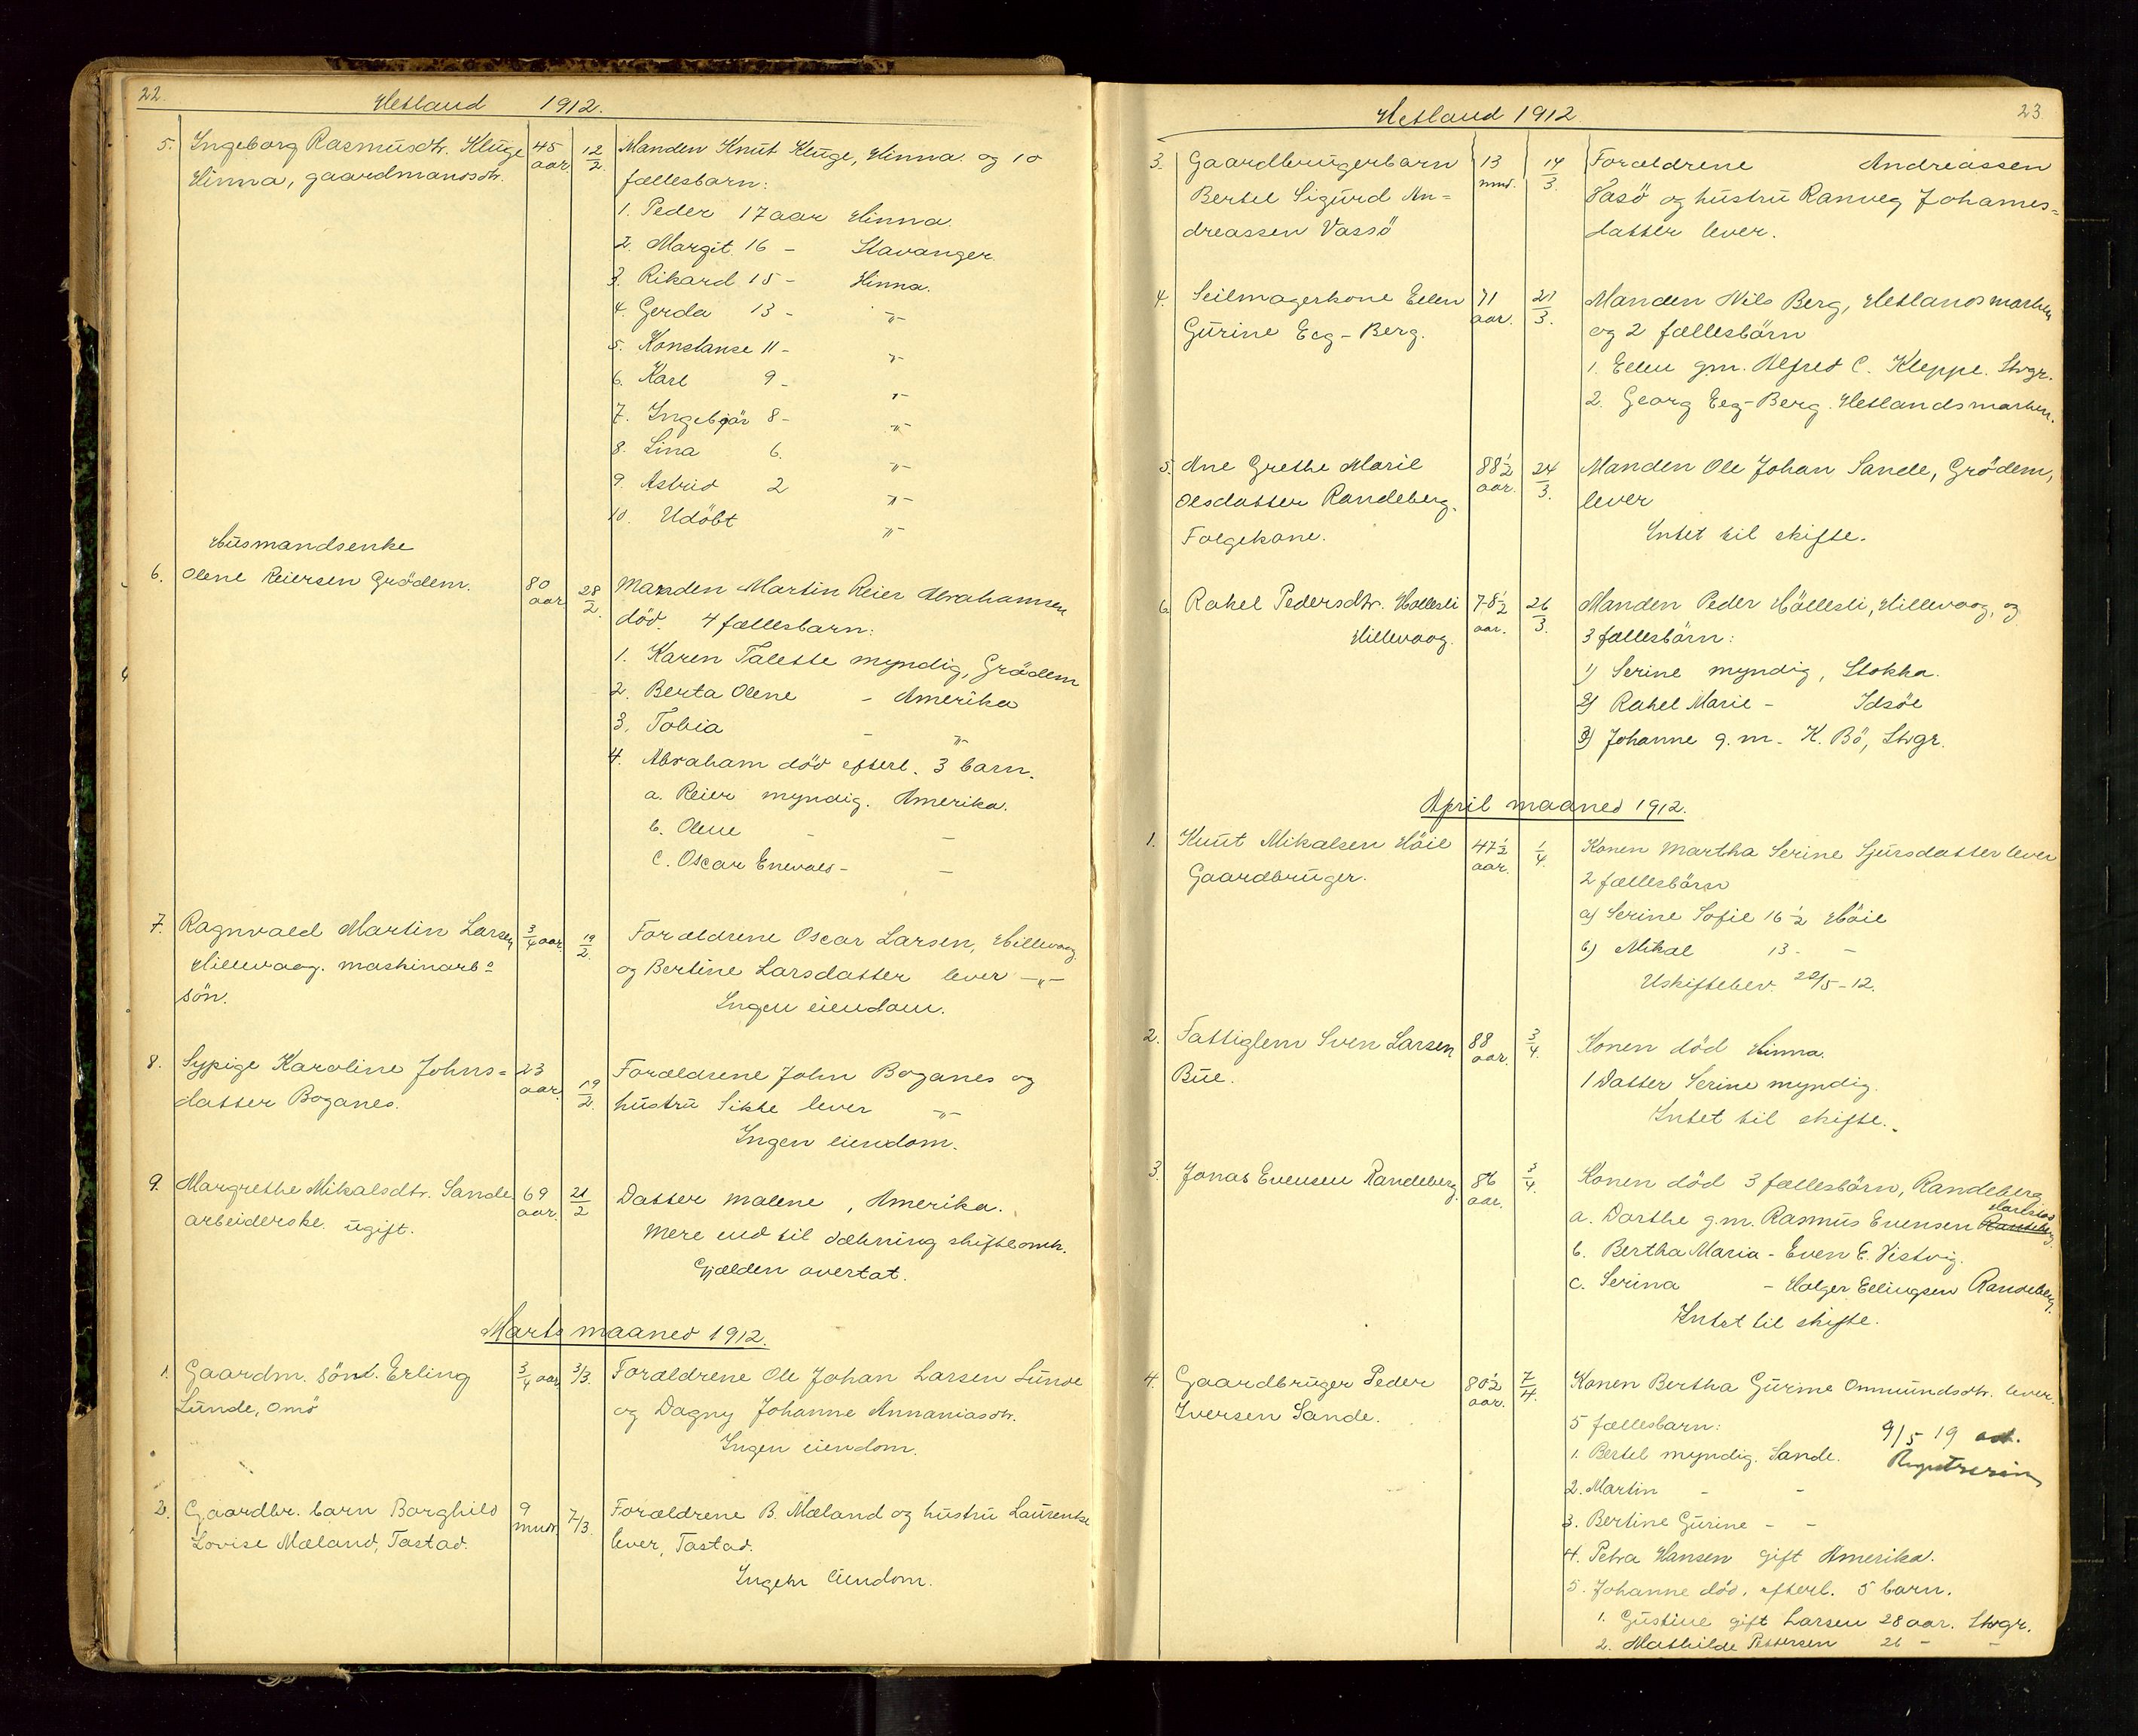 22.
Hetland 1912.
5. Ingeborg Rasmusdtr. Kluge 45 aar. 12/2 Manden Knut Kluge, Hinna. og 10
Hinna, gaardmandsdtr. fællesbarn:
1. Peder 17 aar Hinna.
2. Margit 16 - Stavanger
3. Rikard 15 - Hinna.
4. Gerda 13 - -"-
5. Konstanse 11 - -"-
6. Karl 9 - -"-
7. Ingebjör 8 - -"-
8. Lina 6. -"-
9. Astrid 2 -"-
10. Udöbt -"-
Husmandsenke
6. Olene Reiersen Grödem. 80 aar 28/2. Manden Martin Reier Abrahamsen
död. 4 fællesbarn:
1. Karen Talette myndig, Grödem
2. Berta Olene - Amerika
3. Tobia - -"-
4. Abraham död efterl. 3 barn.
a. Reier myndig. Amerika.
b. Olene - -
c. Oscar Enevald - -
7. Ragnvald Martin Larsen 3/4 aar. 19/2. Forældrene Oscar Larsen, Hillevaag
Hillevaag. maskinarb. og Bertine Larsdatter lever -"-
sön. Ingen eiendom.
8. Sypige Karoline Johns= 23 aar 19/2. Forældrene John Boganes og
datter Boganes. hustru Sikke lever -"-
Ingen eiendom.
9. Margrethe Mikalsdtr. Sande 69 aar. 21/2 Datter Malene, Amerika.
arbeiderske. ugift. Mere end til dækning skifteomk.
Gjælden overtat.
Marts maaned 1912.
1. Gaardm. sönd. Erling 3/4 aar 3/3. Forældrene Ole Johan Larsen Lunde
Lunde, Omö og Dagny Johanne Annaniasdtr.
Ingen eiendom.
2. Gaardbr. barn Borghild 9 mndr. 7/3. Forældrene B. Mæland og hustru Laurentse
Lovise Mæland, Tastad. lever, Tastad.
Ingen Eiendom.
Hetland 1912
23.
3. Gaardbrugerbarn 13 mnd. 14/3. Forældrene Andreassen
Bertel Sigurd An= Vasö og hustru Ranveg Johannes=
dreassen Vassö datter lever.
4. Seilmagerkone Ellen 71 aar. 21/3. Manden Nils Berg, Hetlandsmarken
Gurine Eeg-Berg. og 2 fællesbörn
1. Ellen gm. Alfred C. Kleppe. Stvgr.
2. Georg Eeg-Berg. Hetlandsmarken.
5. Ane Grethe Marie 88 1/2 aar. 24/3. Manden Ole Johan Sande, Grödem,
Olsdatter Randeberg. lever
Folgekone. Intet til skifte.
6. Rahel Pedersdtr. Hollesli 78 1/2 aar. 26/3. Manden Peder Höllesli, Hillevaag, og
Hillevaag. 3 fællesbörn:
1) Serine myndig, Stokka.
2) Rahel Marie - Idsöe
3) Johanne g.m. K. Bö, Stvgr.
April maaned 1912.
1. Knut Mikalsen Höie 47 1/2 aar. 1/4. Konen Martha Serine Sjursdatter lever
Gaardbruger. 2 fællesbörn
a) Serine Sofie 16 1/2 Höie
b) Mikal 13 - -
Uskiftebev. 22/5-12.
2. Fattiglem Sven Larsen 88 aar. 3/4. Konen död Hinna.
Bue. 1 Datter Serine myndig.
Intet til skifte.
3. Jonas Evensen Randeberg 86 aar. 3/4. Konen död 3 fællesbörn, Randeberg
Harestad
a. Dorthe g.m. Rasmus Evensen Randeberg.
b. Bertha Maria - Even E. Vistvig.
c. Serina - Holger Ellingsen Randeberg.
Intet til skifte.
4. Gaardbruger Peder 80 1/2 aar. 7/4 Konen Bertha Gurine Ommundsdtr. lever.
Iversen Sande. 5 fællesbarn: 9/5 19
1. Bertel myndig. Sande. Registrering
2. Martin - -
3. Bertine Gurine - -
4. Petra Hansen gift Amerika.
5. Johanne död, efterl. 5 barn.
1. Gustine gift Larsen 28 aar. Stvgr.
2. Mathilde Pettersen 26 - -